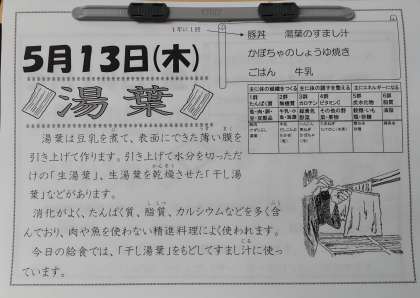 1年に1回
5月13日(木)
湯葉
豚丼 湯葉のすまし汁
かぼちゃのしょうゆ焼き
ごはん 牛乳
主に体の組織をつくる 主に体の調子を整える 主にエネルギーになる
1群 2群 3群 4群 5群 6群
たんぱく質 無機質 カロテン ビタミンC 炭水化物 脂質
湯葉は豆乳を煮て、表面にできた薄い膜を
引き上げて作ります。引き上げて水分を切っただ
けの「生湯葉」、生湯葉を乾燥させた「干し湯
葉」などがあります。
消化がよく、たんぱく質、脂質、カルシウムなどを多く含
んでおり、肉や魚を使わない精進料理によく使われます。
今日の給食では、「干し湯葉」をもどしてすまし汁に使っ
ています。